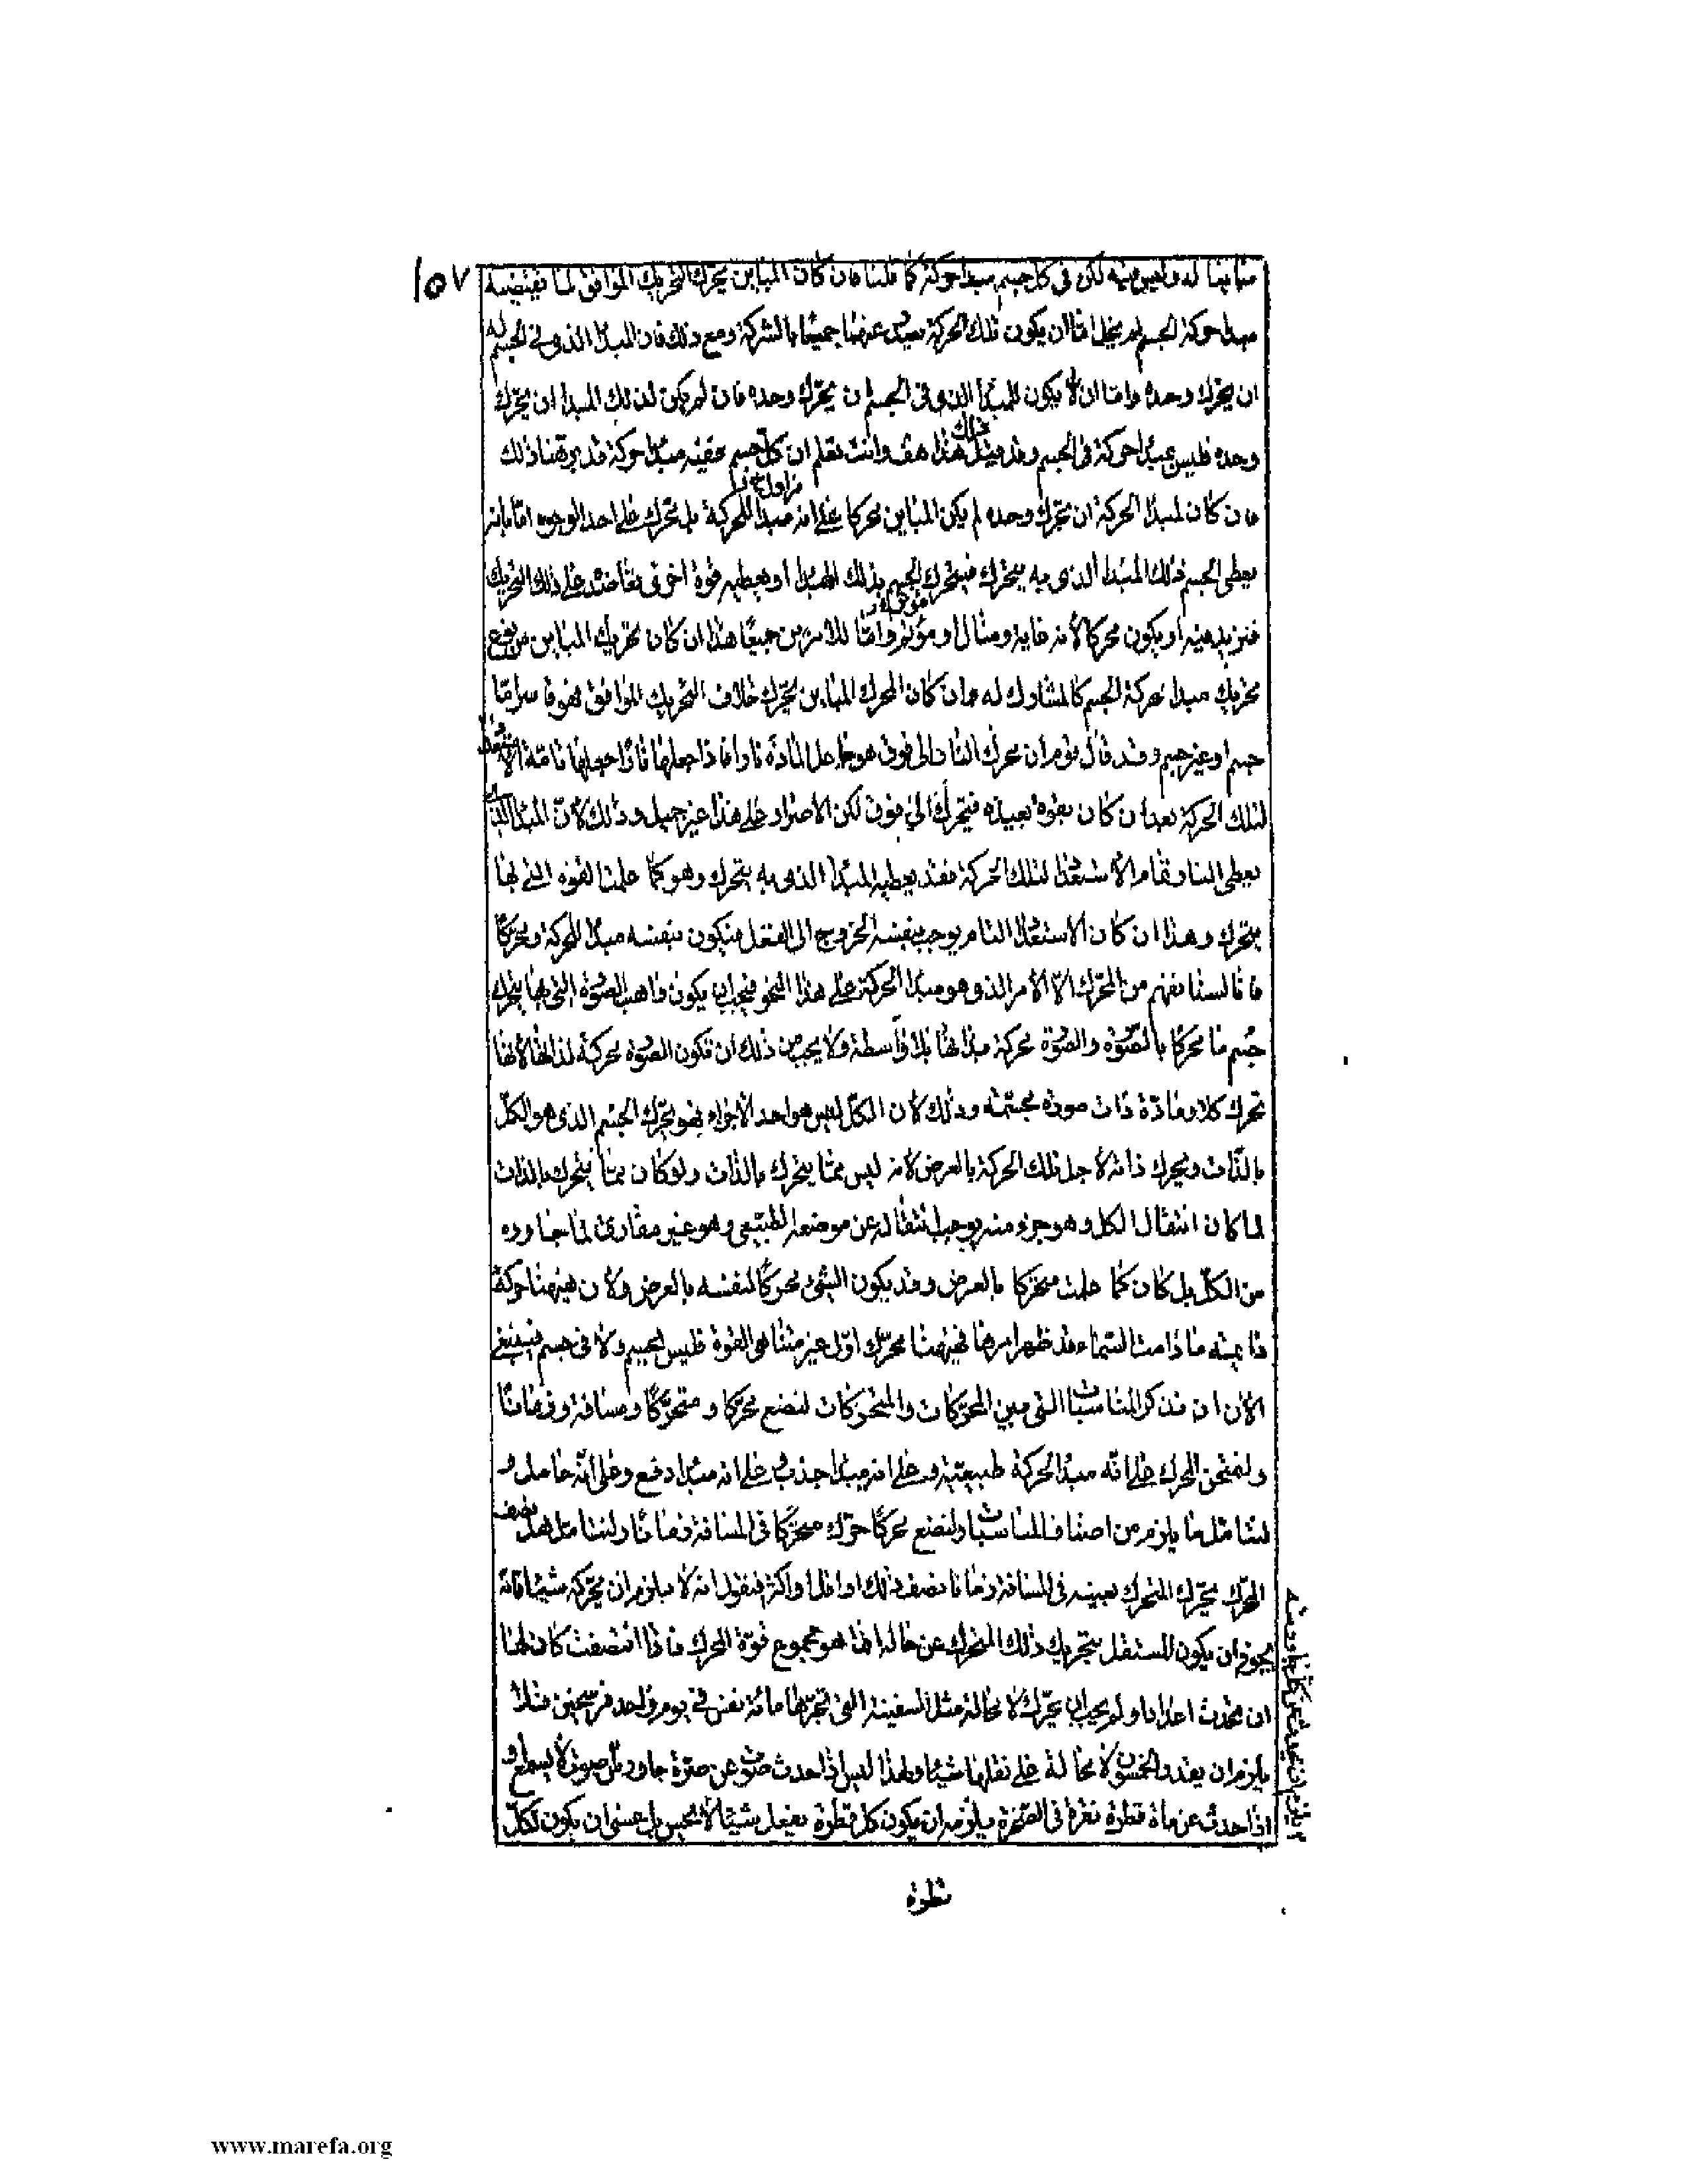 ١٥٧
مباينا له وليس فيه لكن في كل جسم مبدا حركة كما قلنا فان كان المباين يحرك التحريك الموافق لما تقتضيه
مبدا حركة الجسم لم يخل اما ان يكون تلك الحركة تصدر عنهما جميعا بالشركة ومع ذلك فان للمبدا الذي في الجسم له
ان يحرك وحده واما ان لا يكون للمبدا الذي في الجسم ان يحرك وحده فان لم يكن لذلك المبدا ان يحرك
وحده فليس بمبدا حركة في الجسم وقد قيل ذلك هذا هف وانت تعلم ان كل جسم ففيه مبدا حركة قد برهنا ذلك
فان كان لمبدا الحركة ان يحرك وحده لم يكن المباين محركا على انه مبدا للحركة بل يحرك على احد الوجوه اما بانه
يعطى الجسم ذلك المبدا الذي به يتحرك فيتحرك الجسم بذلك المبدا او يعطيه قوة اخرى تعاضده على ذلك التحريك
فتزيد فيه او يكون محركا لانه غاية ومثال او مؤثر واما للامرين جميعا هذا ان كان تحريك المباين من نوع
تحريك مبدا حركة الجسم كالمشارك له وان كان المحرك المباين يحرك خلاف التحريك الموافق فهو قاسر اما
جسم او غير جسم وقد قال قوم ان محرك النار الى فوق هو جاعل المادة نارا فاذا جعلها نارا جعلها تامة الاستعداد
لتلك الحركة بعد ان كان بقوة بعيدة فيتحرك الى فوق لكن الاصرار على هذا غير جميل وذلك لان المبدا الذي
يعطى النار تمام الاستعداد لتلك الحركة فقد يعطيه المبدا الذي به يتحرك وهو كما علمت القوة التي بها
يتحرك وهذا ان كان الاستعداد التام يوجب بنفسه الخروج الى الفعل فيكون بنفسه مبدا للحركة ومحركا
فانا لسنا نفهم من المحرك الا الامر الذي هو مبدا الحركة على هذا النحو فيجب ان يكون واهب الصورة التي بها يتحرك
جسم ما محركا بالصورة والصورة محركة مبدا لها بلا واسطة ولا يجب من ذلك ان تكون الصورة محركة لذاتها لانها
تحرك كلا ومادة ذات صورة مجتمعة وذلك لان الكل ليس هو احد الاجزاء فهو يحرك الجسم الذي هو الكل
بالذات ويحرك ذاته لاجل تلك الحركة بالعرض لانه ليس مما يتحرك بالذات ولو كان مما يتحرك بالذات
لما كان انتقال الكل وهو جزء منه يوجب انتقاله عن موضعه الطبيعي وهو غير مفارق لما جاوره
من الكل بل كان كما علمت متحركا بالعرض وقد يكون الشيء محركا لنفسه بالعرض ولان هيهنا حركة
دائمة ما دامت السماء قد ظهر امرها فهيهنا محرك اول غير متناهى القوة فليس بجسم ولا في جسم فينبغي
الان ان نذكر المناسبات التي بين المحركات والمتحركات لنضع محركا ومتحركا ومسافة وزمانا
ولنمتحن المحرك على انه مبدا الحركة طبيعية وعلى انه مبدا جذب وعلى انه مبدا دفع وعلى انه حامل و
لنتامل ما يلزم من اصناف المناسبات ولنضع محركا حرك متحركا في المسافة زمانا ولننظر هل نصف
المحرك يحرك المتحرك بعينه في المسافة زمانا نصف ذلك او اقل او اكثر فنقول انه لا يلزم ان يحركه شيئا فانه
يجوز ان يكون المستقل بتحريك ذلك المتحرك عن حاله انما هو مجموع قوة المحرك فاذا انتصفت كان لها
ان تحدث اعدادا ولم يجب ان يحرك لا محالة مثل السفينة التي تجرها مائة نفس في يوم واحد فرسخين فلا
يلزم ان يقدر الخمسون لا محالة على نقلها شيئا ولهذا ليس اذا حدث صوت عن صرة جاورس صوتا لا يسمع و
اذا حدث عن مائة قطرة نقرة في الصخرة يلزم ان يكون كل قطرة يفعل شيئا لا تحس بل عسى ان يكون لكل
قطرة
www.marefa.org